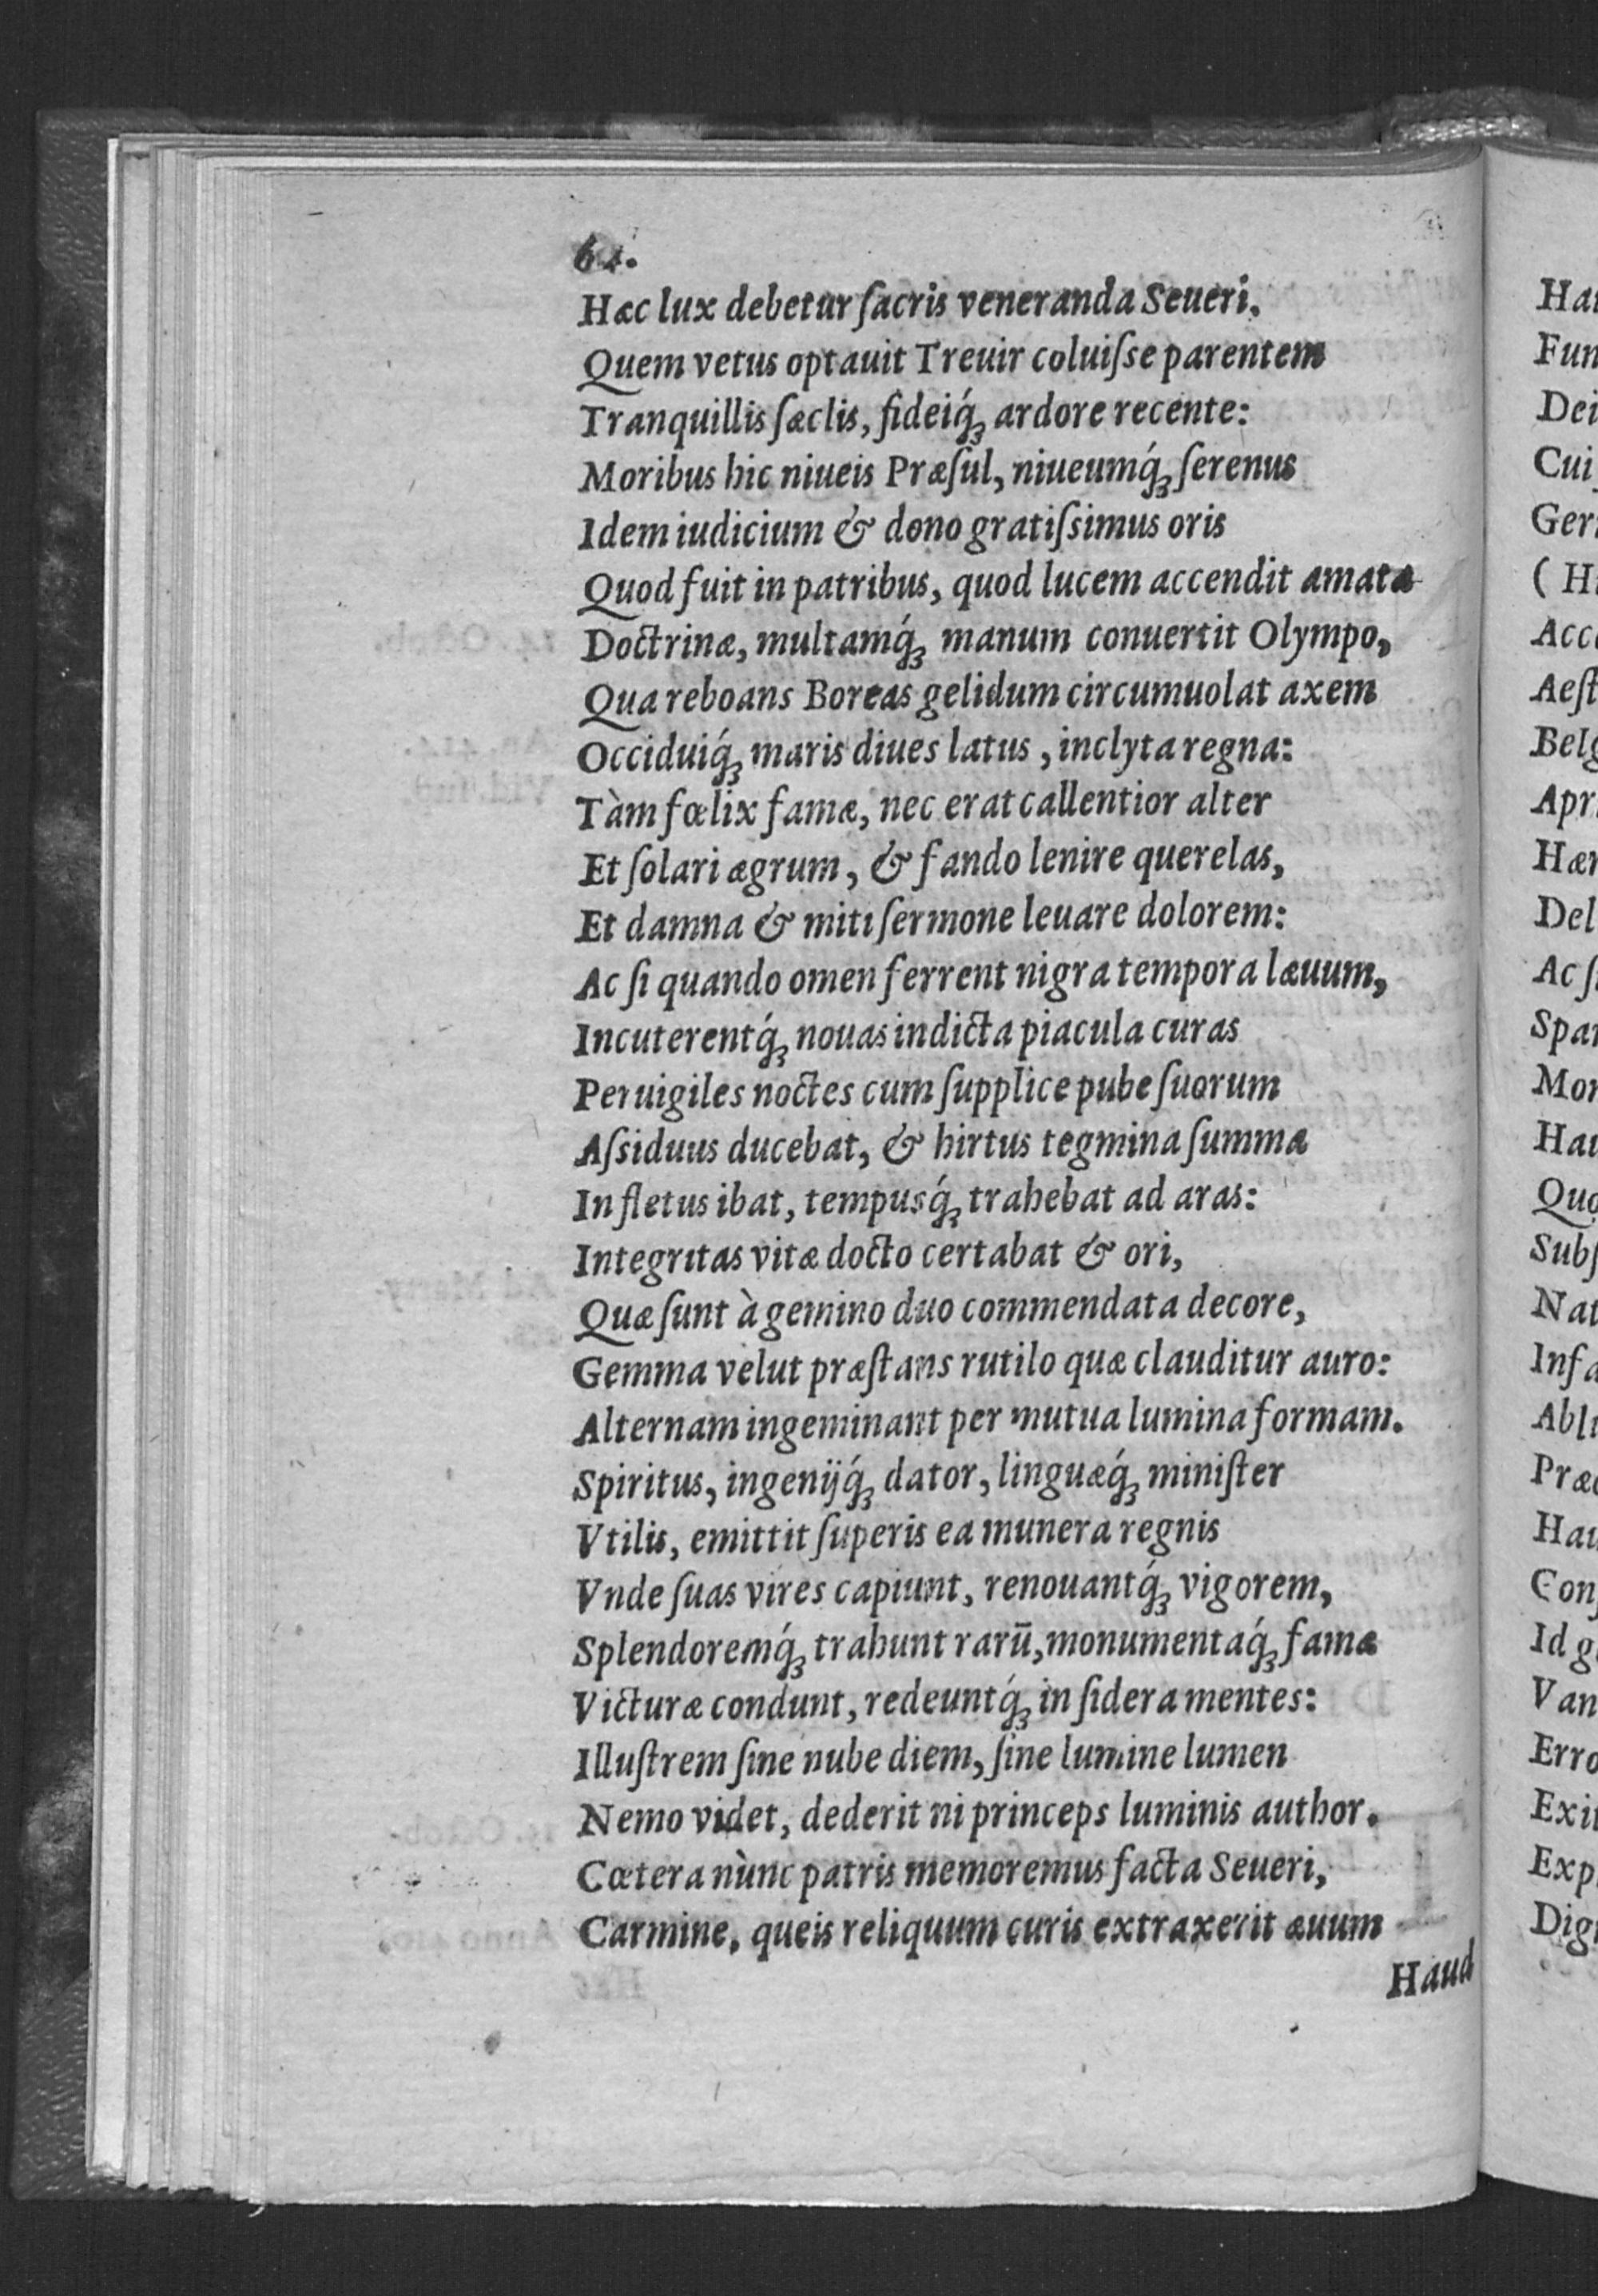 Hæc lux debetur ſacris veneranda Seueri,
Quem vetus optauit Treuir coluiſse parentem
Tranquillis ſæclis, fideiq́ꝫ ardore recente:
Moribus hic niueis Præſul, niueumq́ꝫ ſerenus
Idem iudicium & dono gratiſsimus oris
Quod fuit in patribus, quod lucem accendit amatæ
Doctrinæ, multamq́ꝫ manum conuertit Olympo,
Qua reboans Boreas gelidum circumuolat axem
Occiduiq́ꝫ maris diues latus, inclyta regna:
Tàm fœlix famæ, nec erat callentior alter
Et ſolari ægrum, & fando lenire querelas,
Et damna & miti ſermone leuare dolorem:
Ac ſi quando omen ferrent nigra tempora læuum,
Incuterentq́ꝫ nouas indicta piacula curas
Peruigiles noctes cum ſupplice pube ſuorum
Aſsiduus ducebat, & hirtus tegmina ſumma
In fletus ibat, tempusq́ꝫ trahebat ad aras:
Integritas vitæ docto certabat & ori,
Quæ ſunt à gemino duo commendata decore,
Gemma velut præſtans rutilo quæ clauditur auro:
Alternam ingeminant per mutua lumina formam.
Spiritus, ingenijq́ꝫ dator, linguæq́ꝫ miniſter
Vtilis, emittit ſuperis ea munera regnis
Vnde ſuas vires capiunt, renouantq́ꝫ vigorem,
Splendoremq́ꝫ trahunt rarū, monumentaq́ꝫ famæ
Victuræ condunt, redeuntq́ꝫ in ſidera mentes:
Illuſtrem ſine nube diem, ſine lumine lumen
Nemo videt, dederit ni princeps luminis author.
Cœtera nùnc patris memoremus facta Seueri,
Carmine, queis reliquum curis extraxerit æuum
Haud